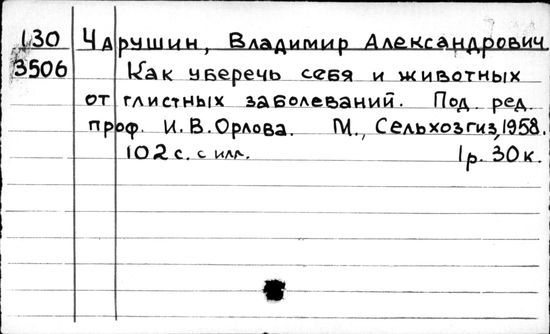 130 Чарушин, Владимир Александрович
3506 Как уберечь себя и животных
от глистных заболеваний. Под ред.
проф. И.В.Орлова. М., Сельхозгиз, 1958.
102 с. с илл. 1р. 30к.